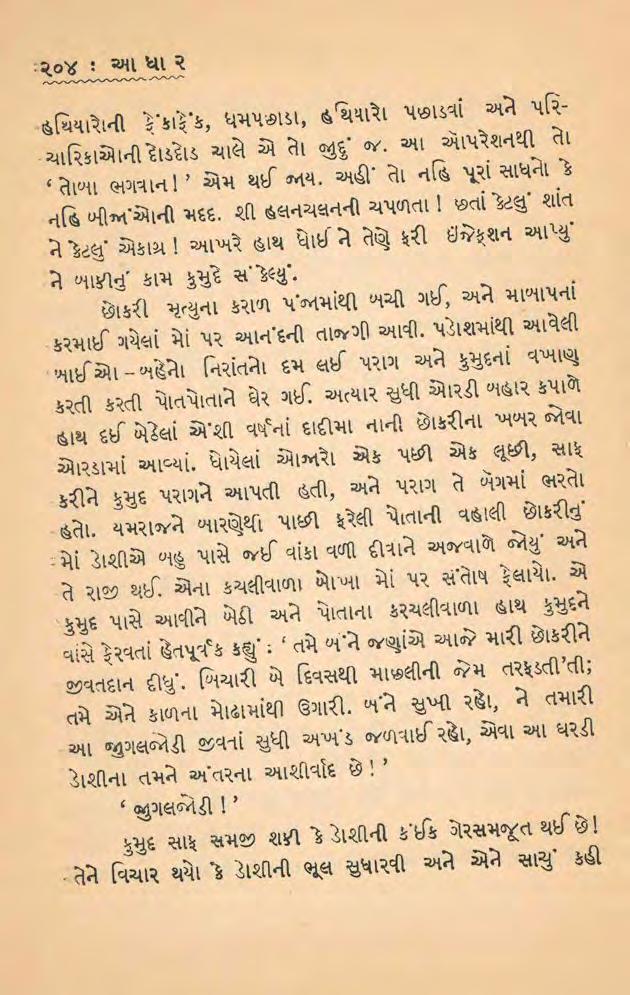 ૨૦૪ : આ ધા ર
હથિયારોની ફેંકાફેંક, ધમપછાડા, હથિયારો પછાડવાં અને પરિ-
ચારિકાઓની દોડદોડ ચાલે એ તો જુદું જ. આ ઑપરેશનથી તો
‘ તોબા ભગવાન ! ’ એમ થઈ જાય. અહીં તો નહિ પૂરાં સાધનો કે
નહિ બીજાંઓની મદદ. શી હલનચલનની ચપળતા ! છતાં કેટલું શાંત
ને કેટલું એકાગ્ર ! આખરે હાથ ધોઈ ને તેણે ફરી ઇંજેક્શન આપ્યું
ને બાકીનું કામ કુમુદે સંકેલ્યું.
છોકરી મૃત્યુના કરાળ પંજામાંથી બચી ગઈ, અને માબાપનાં
કરમાઈ ગયેલાં મોં પર આનંદની તાજગી આવી. પડોશમાંથી આવેલી
બાઈઓ – બહેનો નિરાંતનો દમ લઈ પરાગ અને કુમુદનાં વખાણ
કરતી કરતી પોતપોતાને ઘેર ગઈ. અત્યાર સુધી ઓરડી બહાર કપાળે
હાથ દઈ બેઠેલાં એંશી વર્ષનાં દાદીમા નાની છોકરીના ખબર જોવા
ઓરડામાં આવ્યાં. ધોયેલાં ઓજારો એક પછી એક લૂછી, સાફ
કરીને કુમુદ પરાગને આપતી હતી, અને પરાગ તે બૅગમાં ભરતો
હતો. યમરાજને બારણેથી પાછી ફરેલી પોતાની વહાલી છોકરીનું
મોં ડોશીએ બહુ પાસે જઈ વાંકા વળી દીવાને અજવાળે જોયું અને
તે રાજી થઈ. એના કચલીવાળા બોખા મોં પર સંતોષ ફેલાયો. એ
કુમુદ પાસે આવીને બેઠી અને પોતાના કરચલીવાળા હાથ કુમુદને
વાંસે ફેરવતાં હેતપૂર્વક કહ્યું : ‘ તમે બંને જણાંએ આજે મારી છોકરીને
જીવતદાન દીધું. બિચારી બે દિવસથી માછલીની જેમ તરફડતી’તી;
તમે એને કાળના મોઢામાંથી ઉગારી. બંને સુખી રહો, ને તમારી
આ જુગલજોડી જીવતાં સુધી અખંડ જળવાઈ રહો, એવા આ ઘરડી
ડોશીના તમને અંતરના આશીર્વાદ છે ! ’
‘ જુગલજોડી ! ’
કુમુદ સાફ સમજી શકી કે ડોશીની કંઈક ગેરસમજૂત થઈ છે !
તેને વિચાર થયો કે ડોશીની ભૂલ સુધારવી અને એને સાચું કહી